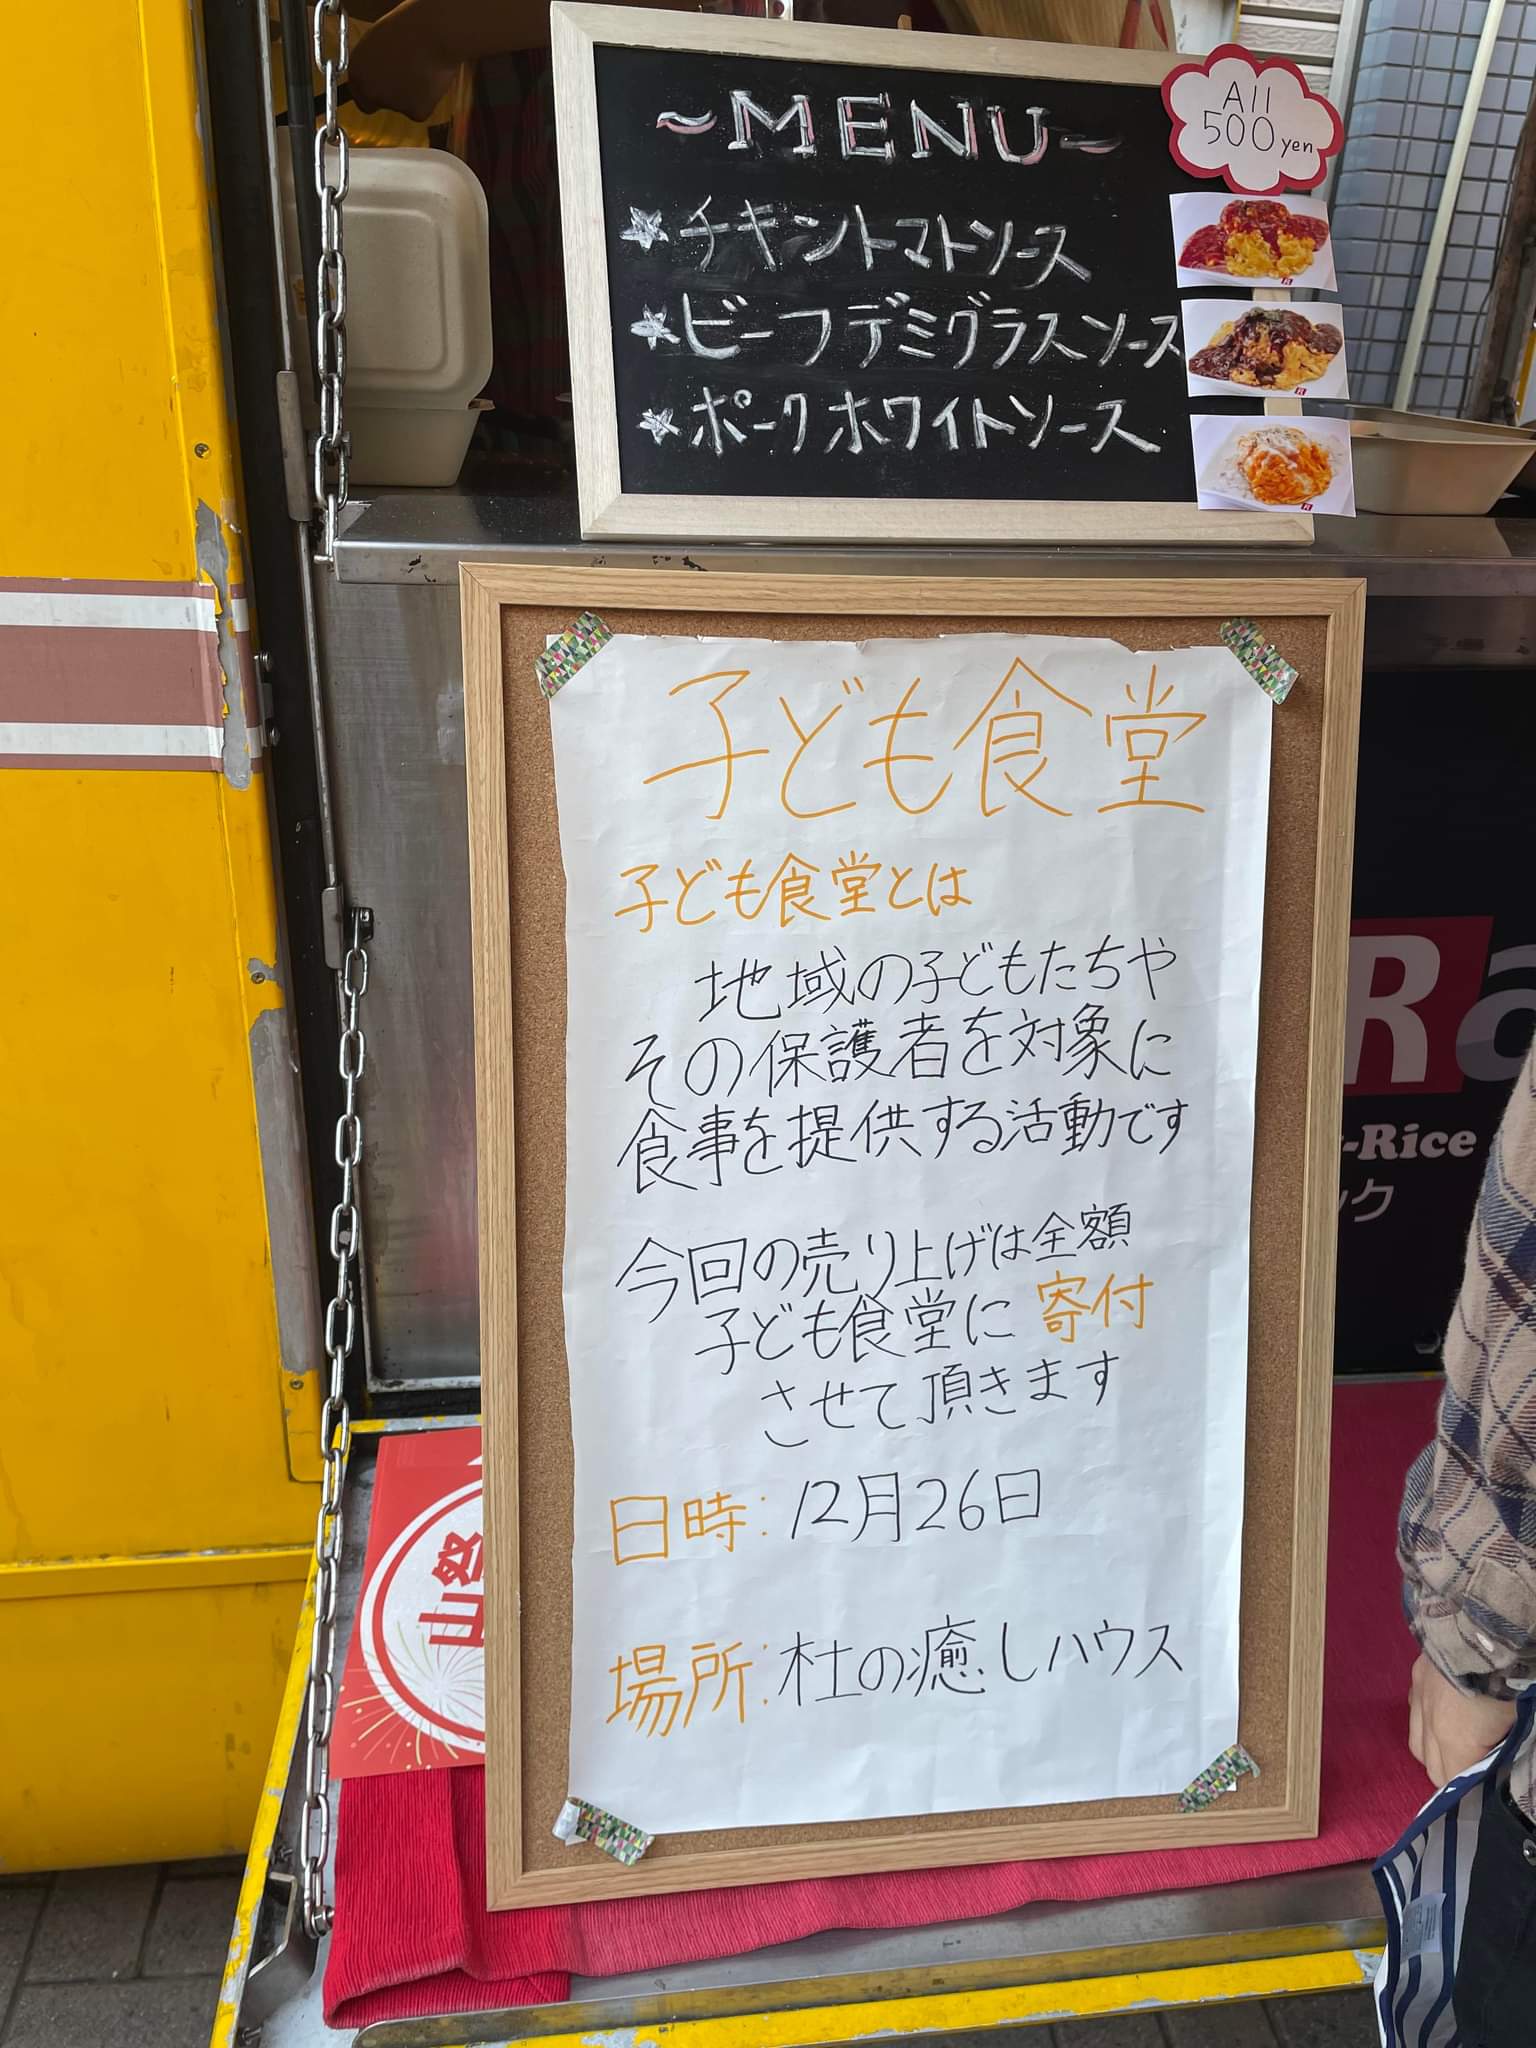 ~MENU~
All
500 yen
★チキントマトソース
★ビーフデミグラスソース
★ポークホワイトソース
子ども食堂
子ども食堂とは
地域の子どもたちや
その保護者を対象に
食事を提供する活動です
今回の売り上げは全額
子ども食堂に寄付
させて頂きます
日時:12月26日
場所:杜の癒しハウス
R
-Rice
ック
山祭